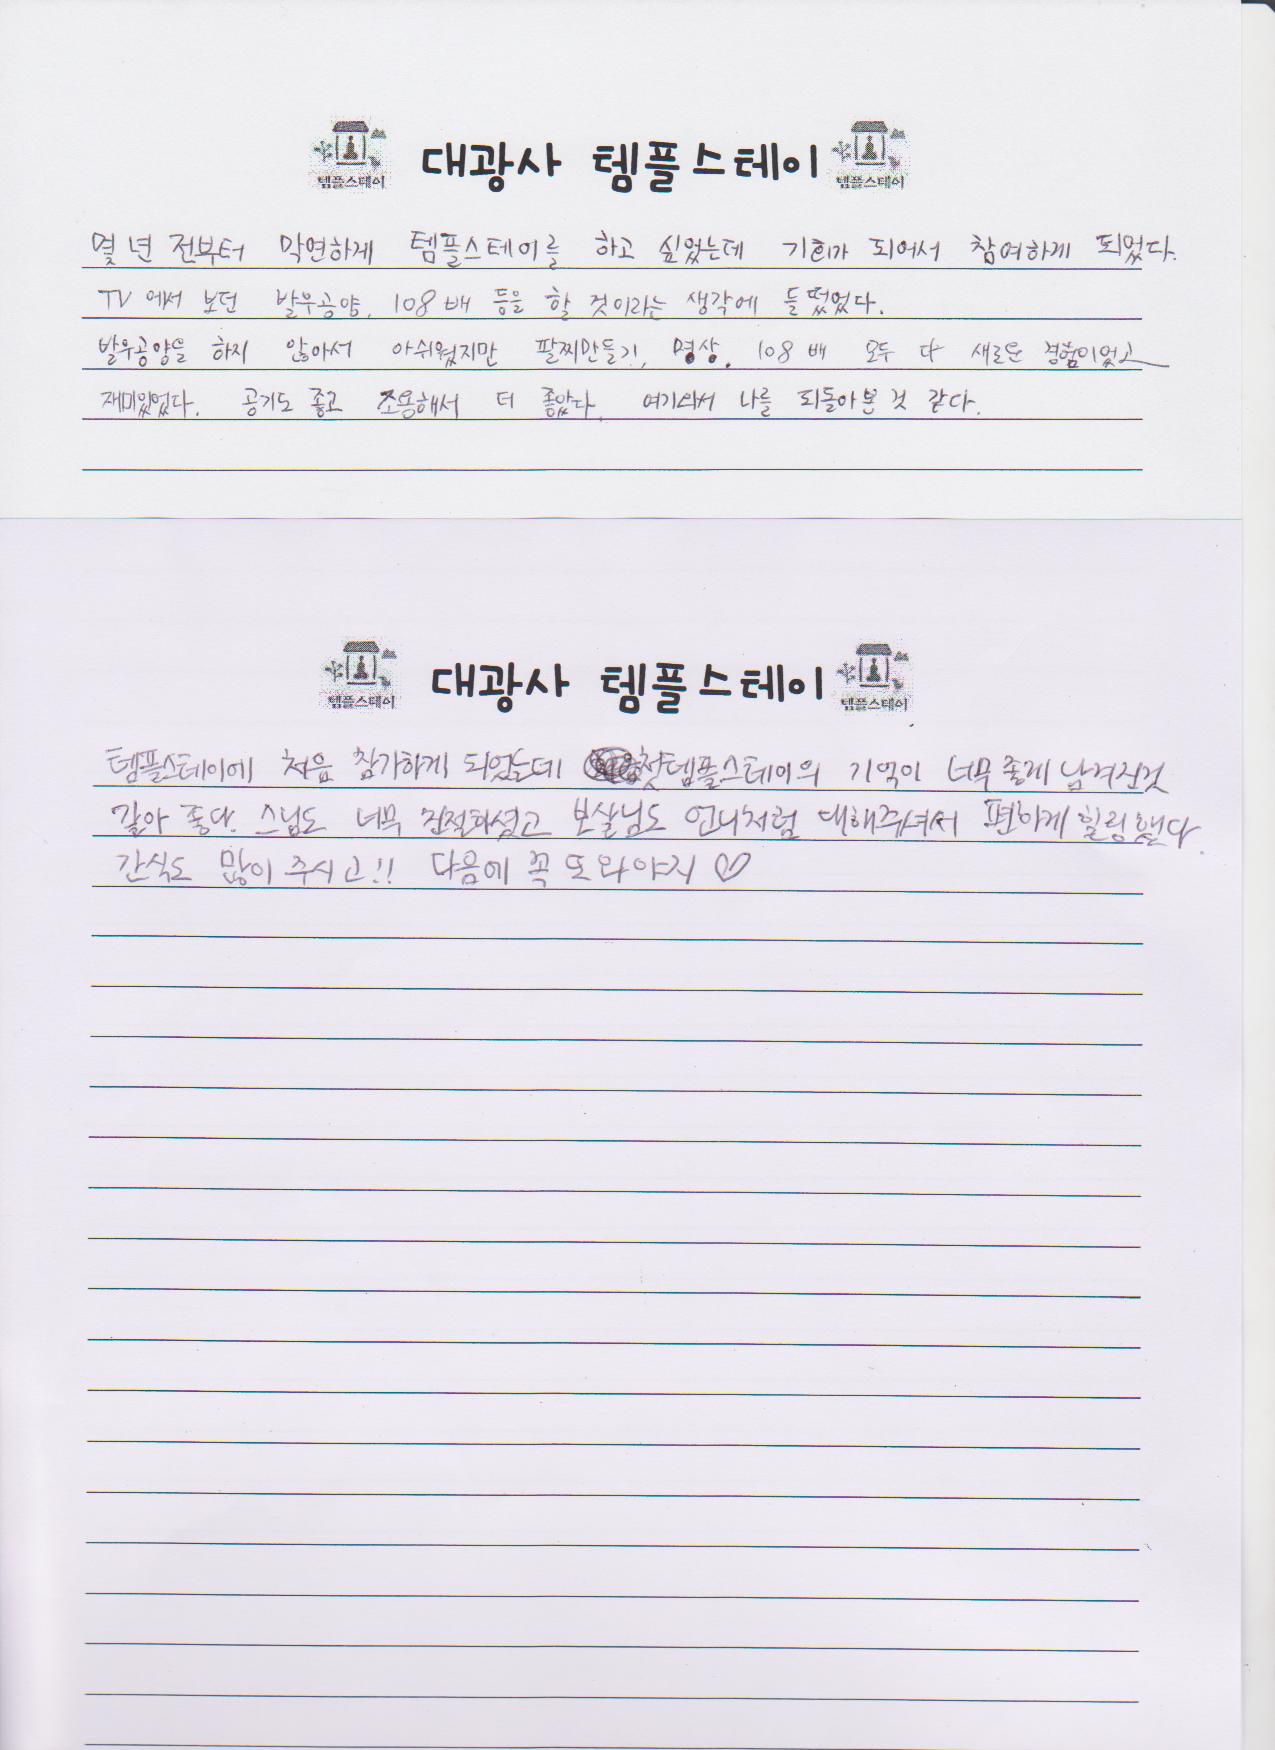 템플스테이 대광사 템플스테이 템플스테이
몇 년 전부터 막연하게 템플스테이를 하고 싶었는데 기회가 되어서 참여하게 되었다.
TV에서 보던 발우공양, 108배 등을 할 것이라는 생각에 들떴었다.
발우공양을 하지 않아서 아쉬웠지만 팔찌만들기, 명상, 108배 모두 다 새로운 경험이었고
재미있었다. 공기도 좋고 조용해서 더 좋았다. 여기와서 나를 되돌아본 것 같다.
템플스테이 대광사 템플스테이 템플스테이
템플스테이에 처음 참가하게 되었는데 첫템플스테이의 기억이 너무 좋게 남겨진것
같아 좋다. 스님도 너무 친절하셨고 보살님도 언니처럼 대해주셔서 편하게 힐링했다.
간식도 많이 주시고!! 다음에 꼭 또 와야지 ♡